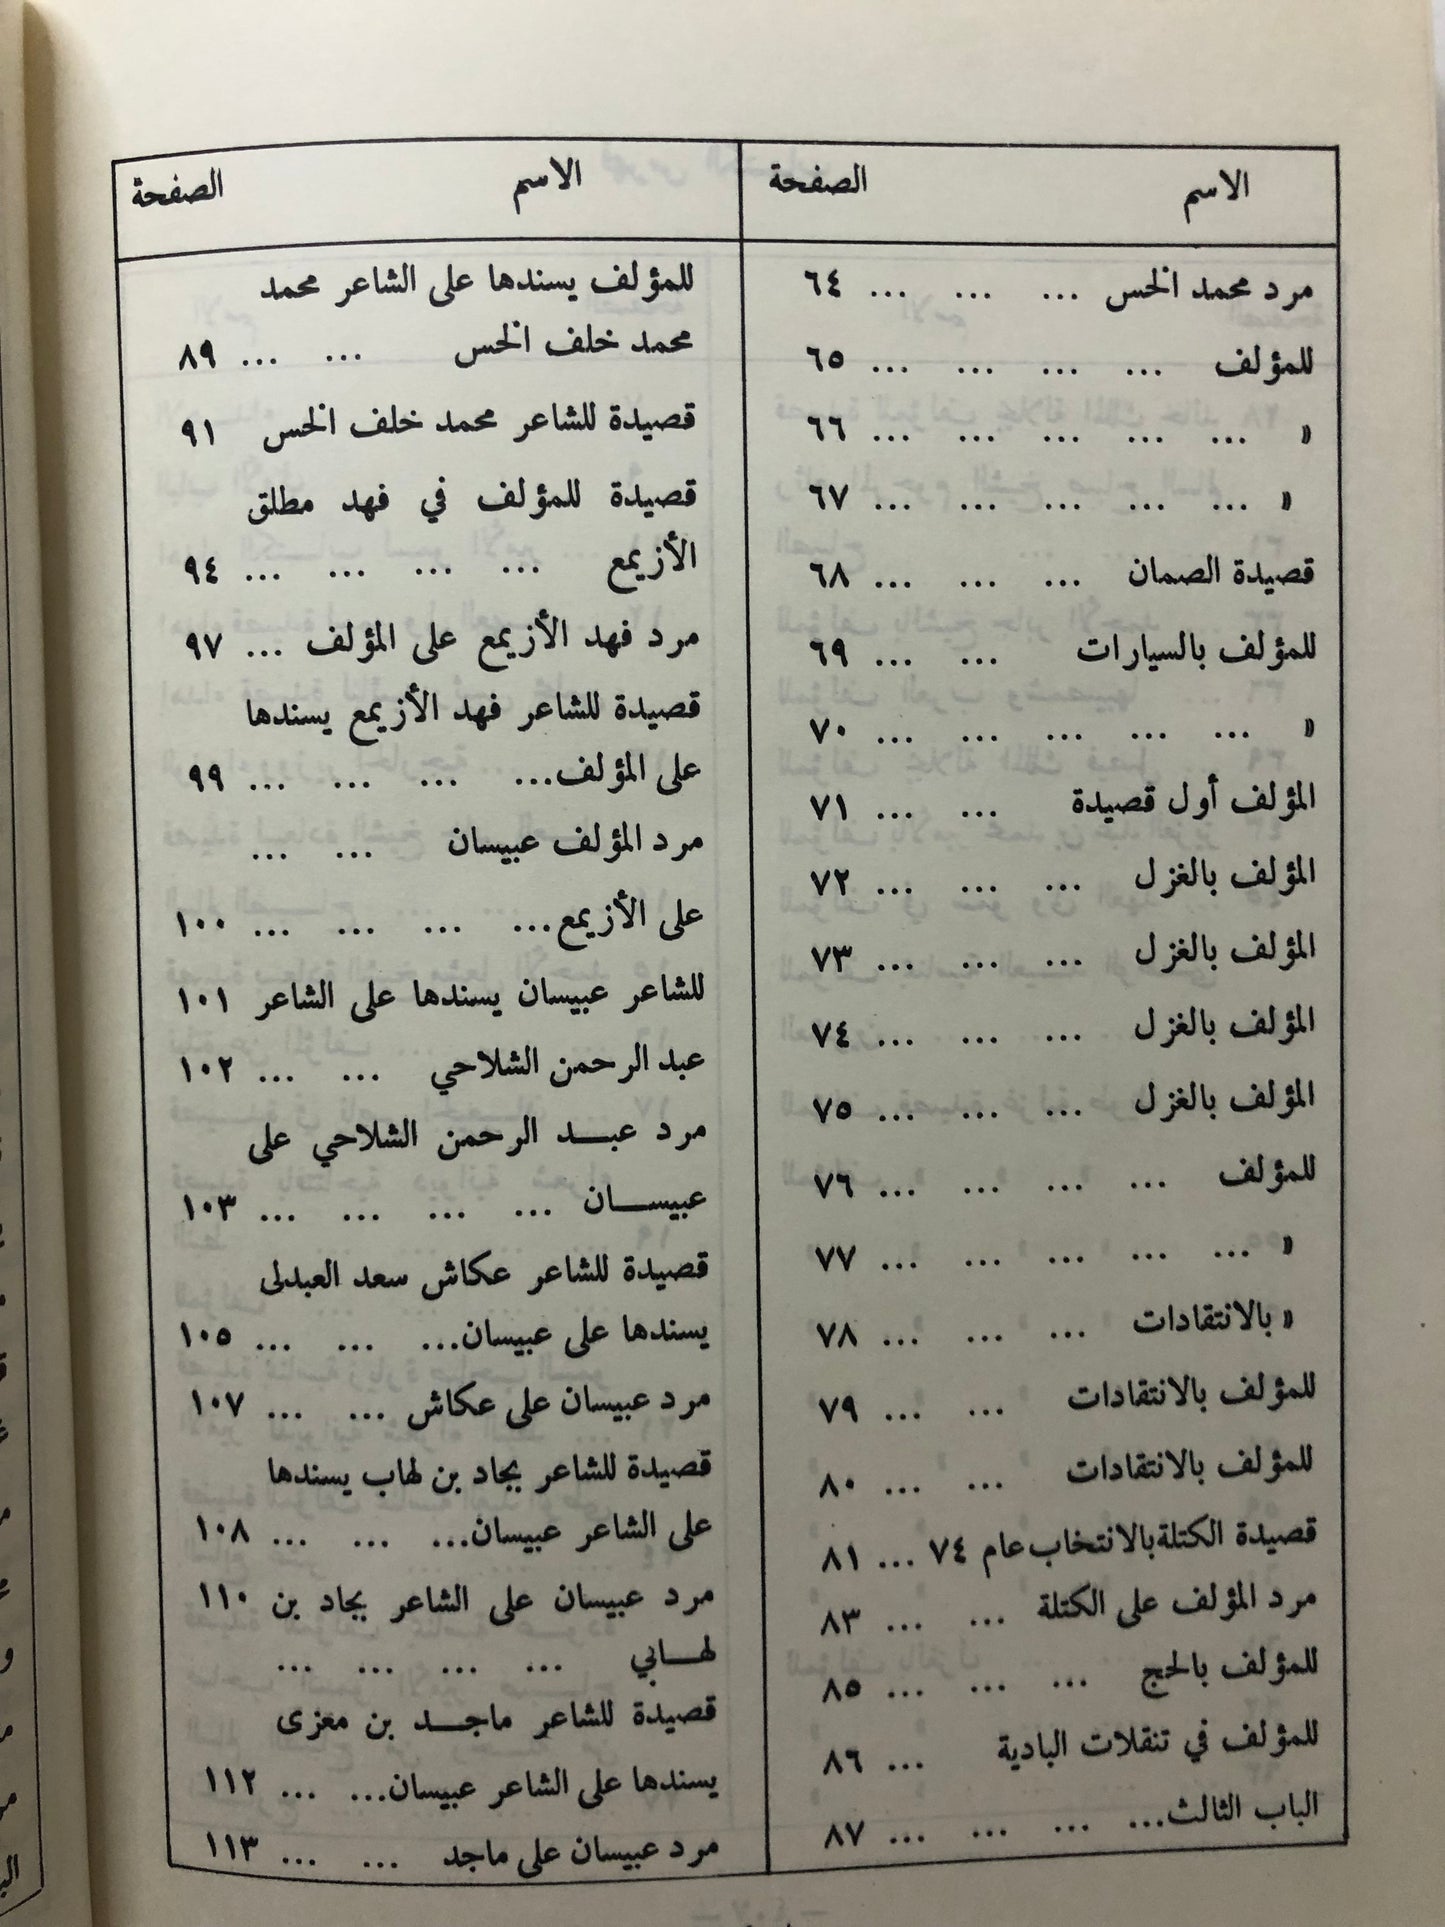 الاسم الصفحة
مرد محمد الخس ... ... ... ٦٤
للمؤلف ... ... ... ... ٦٥
« ... ... ... ... ... ٦٦
« ... ... ... ... ... ٦٧
قصيدة الصمان ... ... ... ٦٨
للمؤلف بالسيارات ... ... ٦٩
« ... ... ... ... ... ٧٠
المؤلف أول قصيدة ... ... ٧١
المؤلف بالغزل ... ... ... ٧٢
المؤلف بالغزل ... ... ... ٧٣
المؤلف بالغزل ... ... ... ٧٤
المؤلف بالغزل ... ... ... ٧٥
للمؤلف ... ... ... ... ٧٦
« ... ... ... ... ... ٧٧
« بالانتقادات ... ... ... ٧٨
للمؤلف بالانتقادات ... ... ٧٩
للمؤلف بالانتقادات ... ... ٨٠
قصيدة الكتلة بالانتخاب عام ٧٤ ... ٨١
مرد المؤلف على الكتلة ... ... ٨٣
للمؤلف بالحج ... ... ... ٨٥
للمؤلف في تنقلات البادية ... ٨٦
الباب الثالث... ... ... ... ٨٧
الاسم الصفحة
للمؤلف يسندها على الشاعر محمد
محمد خلف الخس ... ... ٨٩
قصيدة للشاعر محمد خلف الخس ٩١
قصيدة للمؤلف في فهد مطلق
الأزيمع ... ... ... ... ٩٤
مرد فهد الأزيمع على المؤلف ... ٩٧
قصيدة للشاعر فهد الأزيمع يسندها
على المؤلف... ... ... ... ٩٩
مرد المؤلف عبيسان ... ...
على الأزيمع... ... ... ... ١٠٠
للشاعر عبيسان يسندها على الشاعر ١٠١
عبد الرحمن الشلاحي ... ... ١٠٢
مرد عبـــد الرحمن الشلاحي على
عبيســـان ... ... ... ... ١٠٣
قصيدة للشاعر عكاش سعد العبدلى
يسندها على عبيسان... ... ... ١٠٥
مرد عبيسان على عكاش ... ... ١٠٧
قصيدة للشاعر بجاد بن لهاب يسندها
على الشاعر عبيسان... ... ... ١٠٨
مرد عبيسان على الشاعر بجاد بن ١١٠
لهـــابي ... ... ... ...
قصيدة للشاعر ماجـــد بن معزى
يسندها على الشاعر عبيسان... ... ١١٢
مرد عبيسان على ماجد ... ... ١١٣